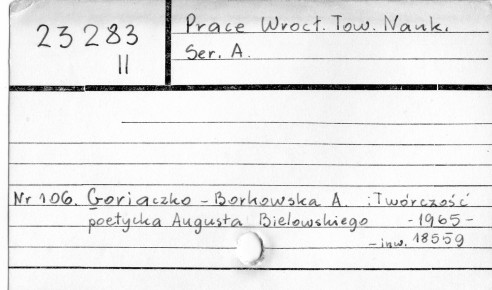 23 283
II
Prace Wrocł. Tow. Nauk.
Ser. A.
Nr 106. Goriaczko-Borkowska A. : Twórczość
poetycka Augusta Bielowskiego -1965-
- inw. 18559